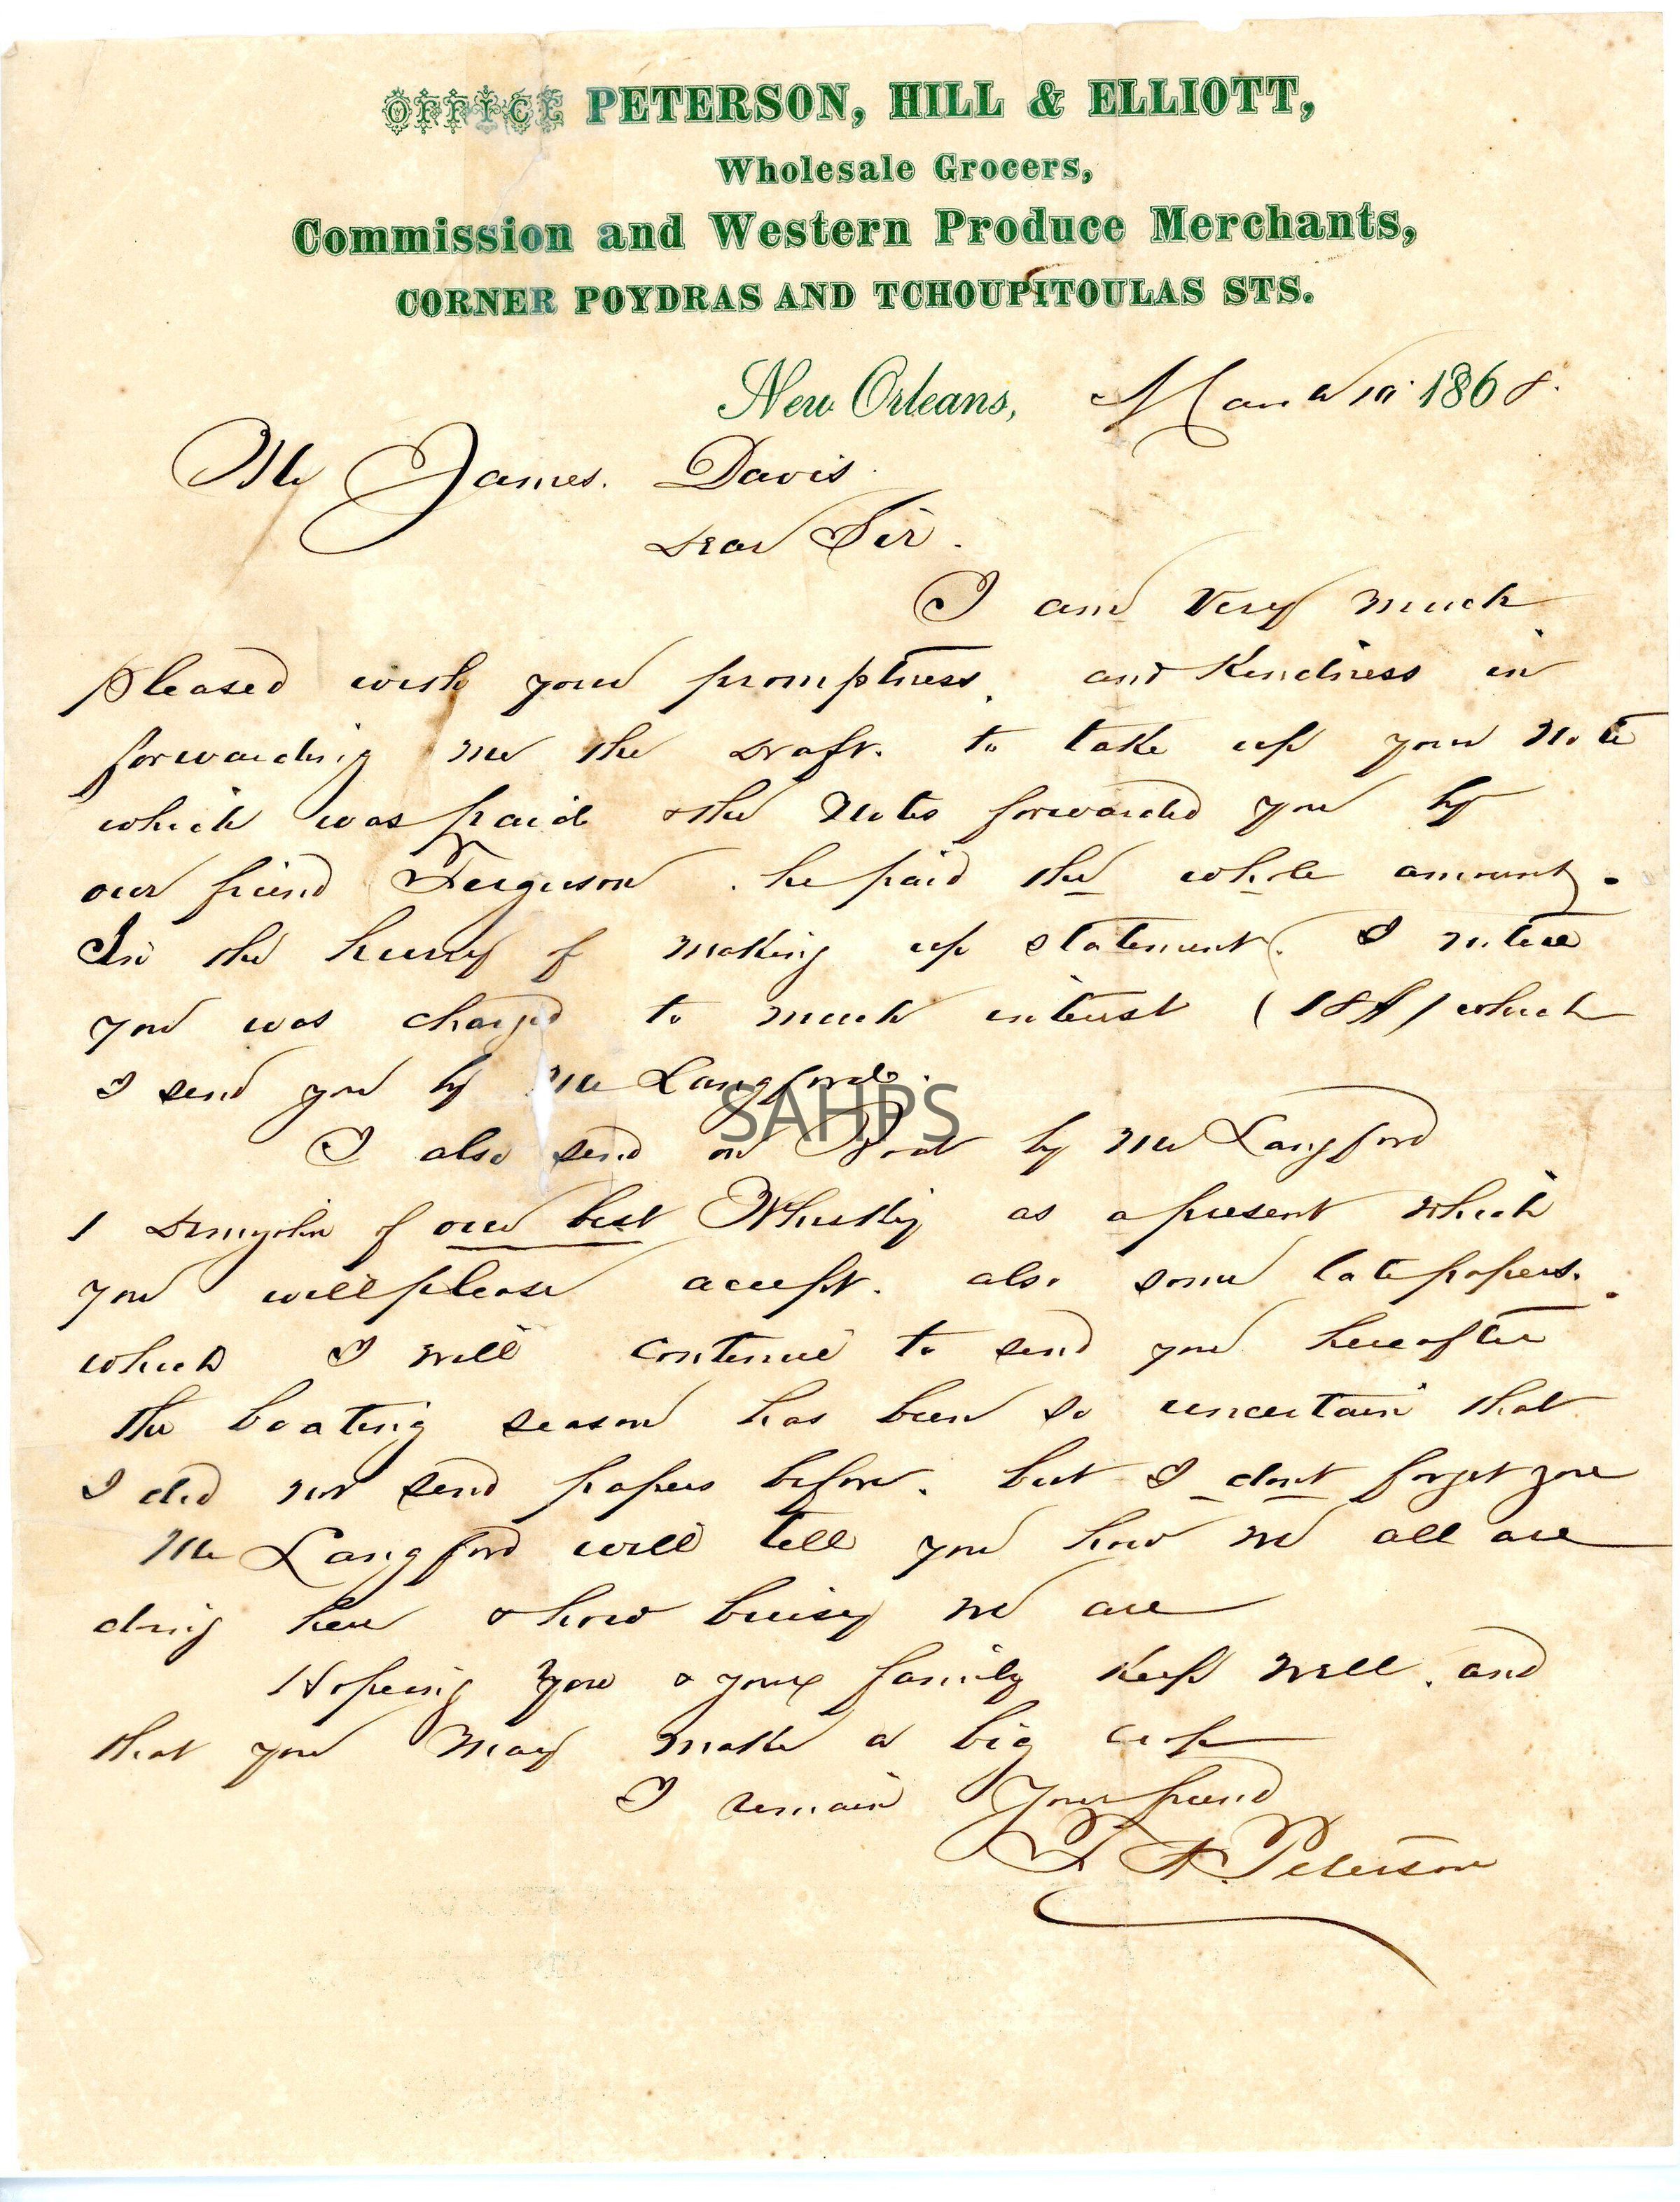 OFFICE PETERSON, HILL & ELLIOTT,
Wholesale Grocers,
Commission and Western Produce Merchants,
CORNER POYDRAS AND TCHOUPITOULAS STS.
New Orleans, March 10 1868.
Mr James. Davis.
Dear Sir.
I am Very much
pleased with your promptness, and Kindness in
forwarding me the Draft. to take up your Note
which was paid & the Notes forwarded you by
our friend Ferguson. he paid the whole amount.
In the hurry of making up statement. I notice
you was charged to much interest (18$) which
I send you by Mr Langford.
SAHPS
I also send on Boat by Mr Langford
1 Demyohn of our best Whiskiy as a present which
you will please accept. also some late papers.
which I will continue to send you hereafter
the boating season has been so uncertain that
I did not send papers before. but I dont forget you
Mr Langford will tell you how we all are
doing here & how buisy we are
Hopeing you & your family Keep well. and
that you May make a big crop
I remain Your friend
Peterson